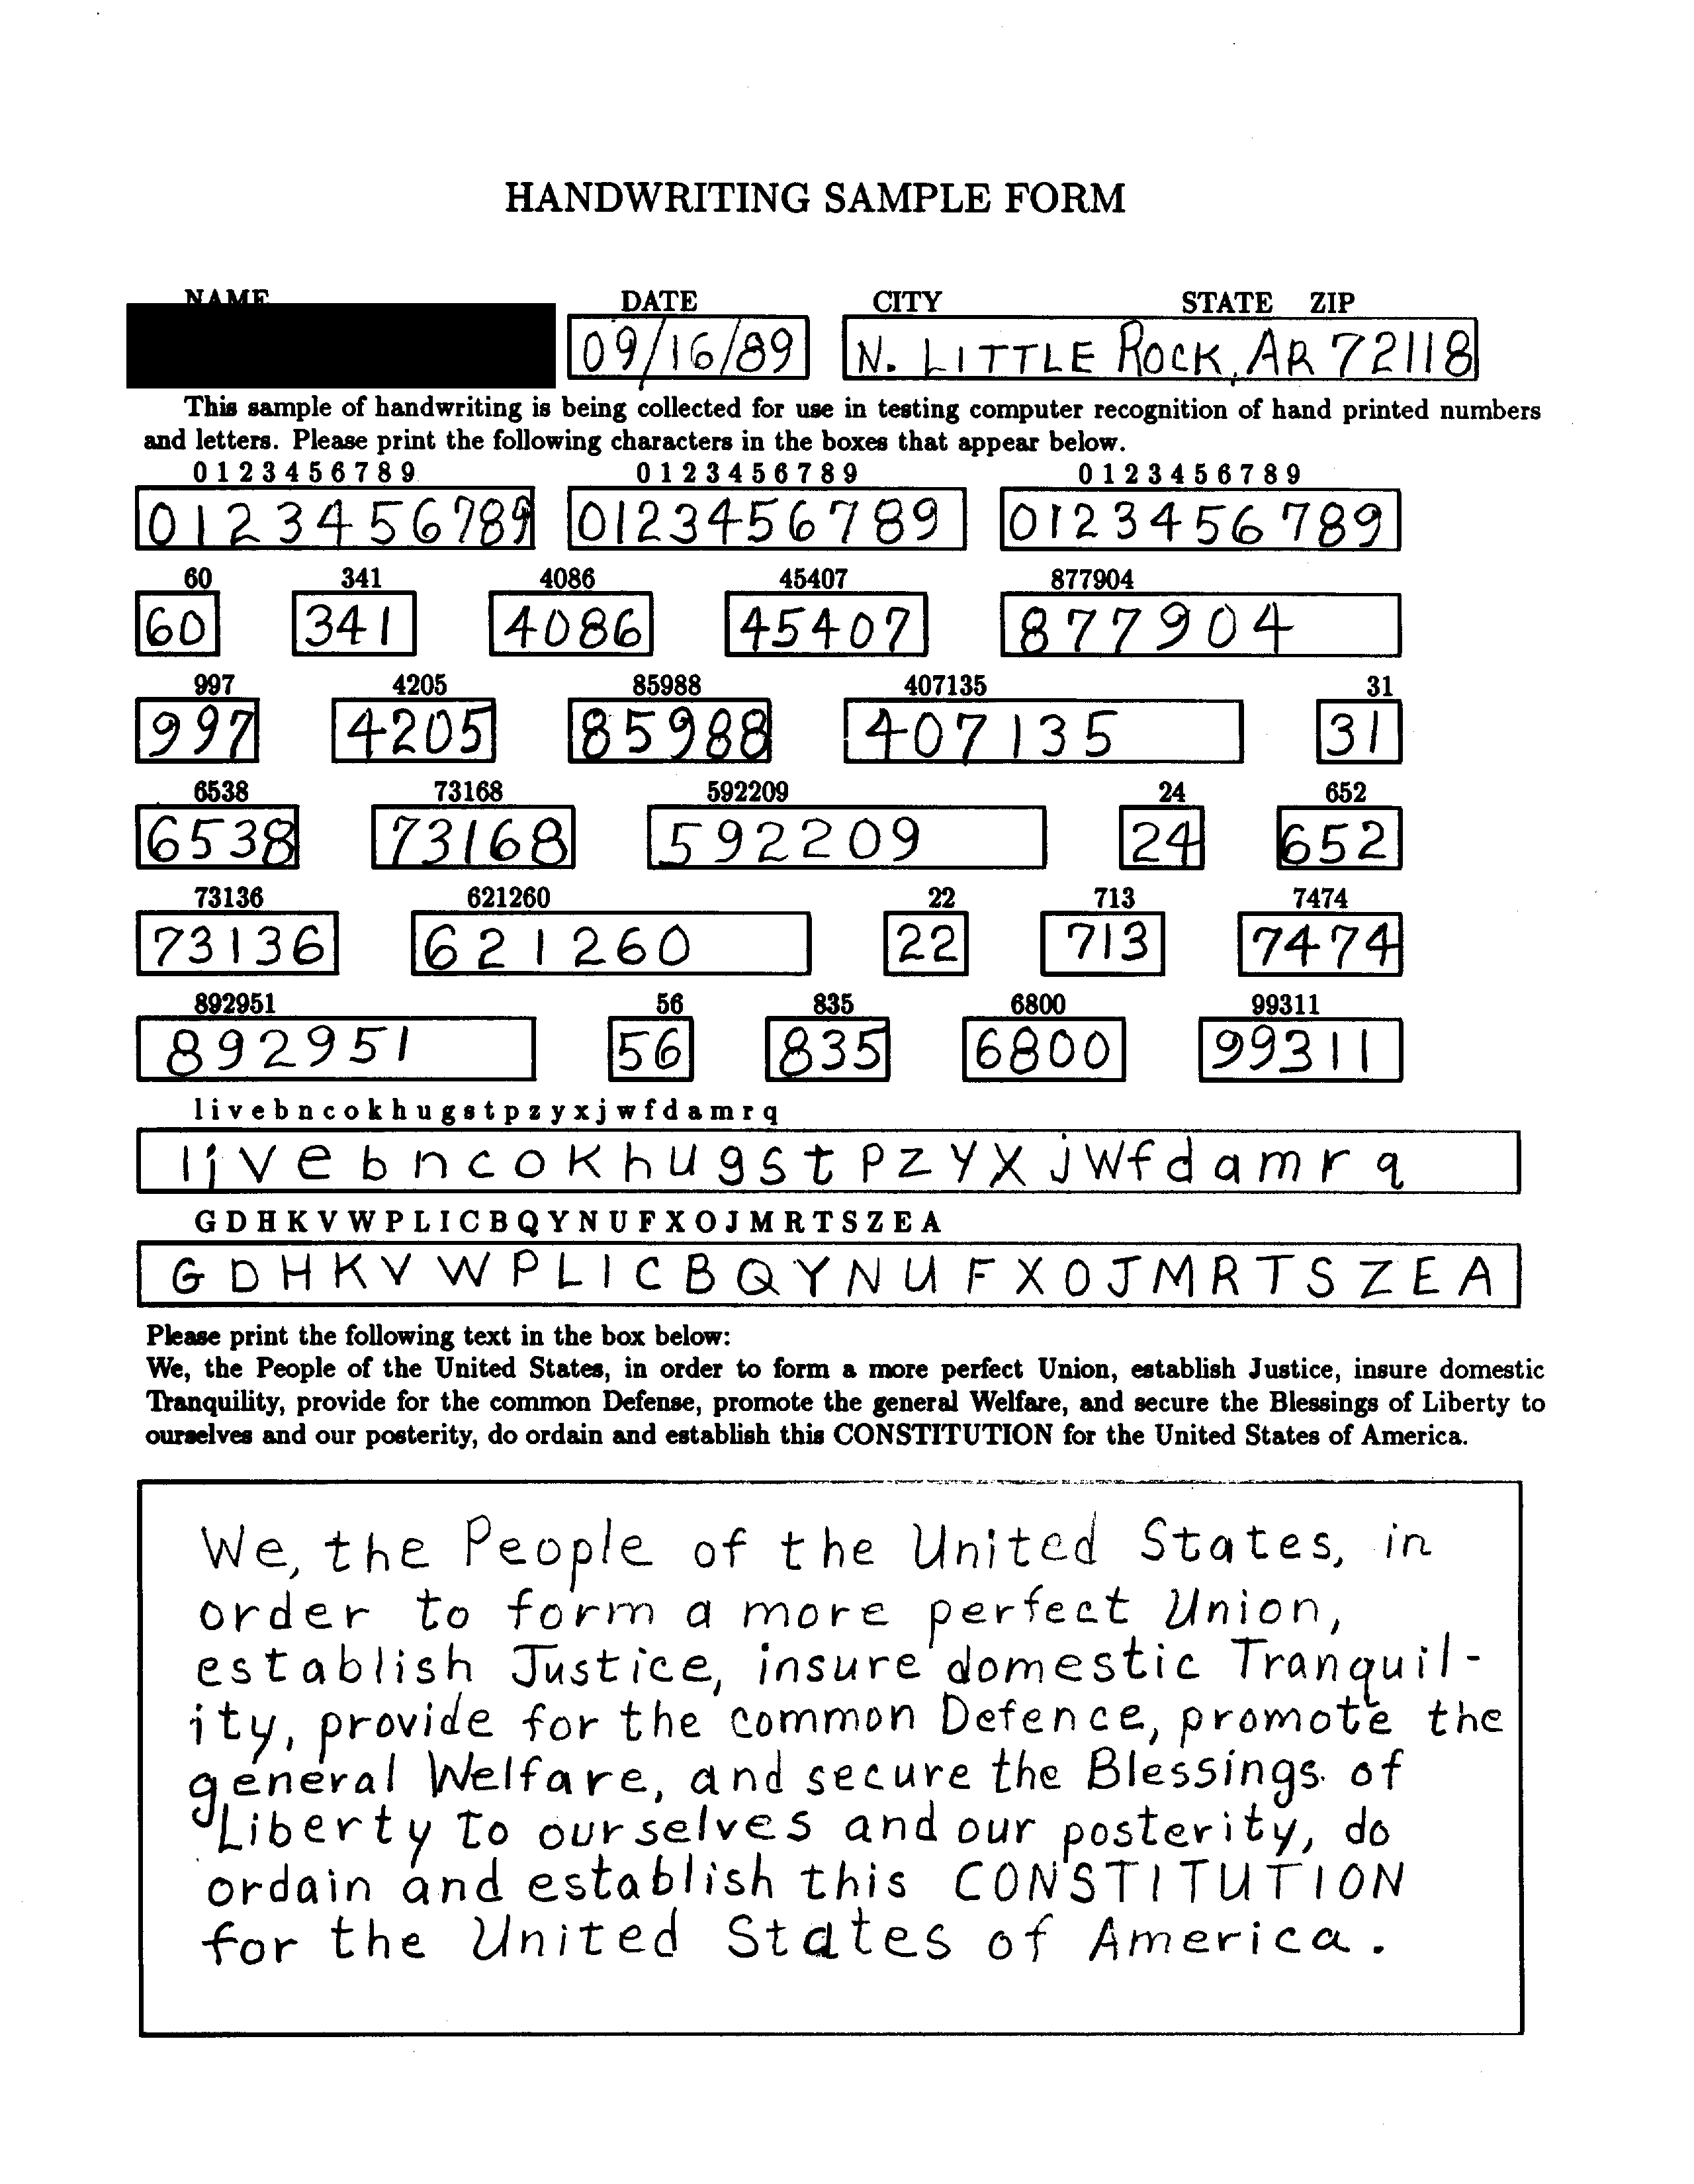 HANDWRITING SAMPLE FORM
NAME DATE CITY STATE ZIP
09/16/89 N. LITTLE ROCK, AR 72118
This sample of handwriting is being collected for use in testing computer recognition of hand printed numbers
and letters. Please print the following characters in the boxes that appear below.
0 1 2 3 4 5 6 7 8 9 0 1 2 3 4 5 6 7 8 9 0 1 2 3 4 5 6 7 8 9
0123456789 0123456789 0123456789
60 341 4086 45407 877904
60 341 4086 45407 877904
997 4205 85988 407135 31
997 4205 85988 407135 31
6538 73168 592209 24 652
6538 73168 592209 24 652
73136 621260 22 713 7474
73136 621260 22 713 7474
892951 56 835 6800 99311
892951 56 835 6800 99311
l i v e b n c o k h u g s t p z y x j w f d a m r q
l i v e b n c o k h u g s t p z y x j w f d a m r q
G D H K V W P L I C B Q Y N U F X O J M R T S Z E A
G D H K V W P L I C B Q Y N U F X O J M R T S Z E A
Please print the following text in the box below:
We, the People of the United States, in order to form a more perfect Union, establish Justice, insure domestic
Tranquility, provide for the common Defense, promote the general Welfare, and secure the Blessings of Liberty to
ourselves and our posterity, do ordain and establish this CONSTITUTION for the United States of America.
We, the People of the United States, in
order to form a more perfect Union,
establish Justice, insure domestic Tranquil-
ity, provide for the common Defence, promote the
general Welfare, and secure the Blessings of
Liberty to ourselves and our posterity, do
ordain and establish this CONSTITUTION
for the United States of America.